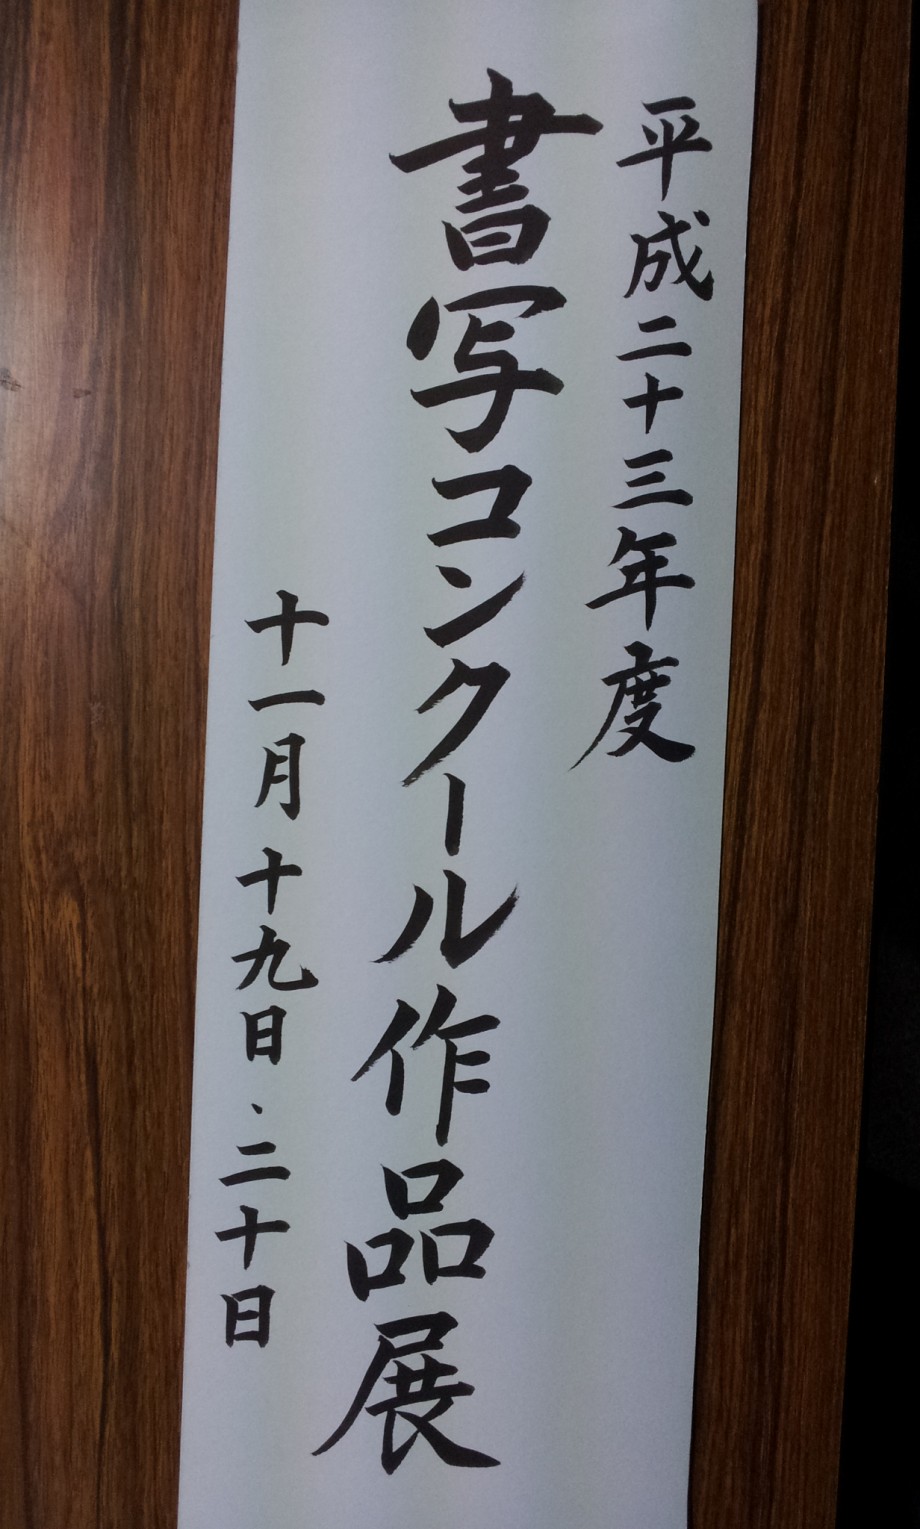 平成二十三年度
書写コンクール作品展
十一月十九日、二十日